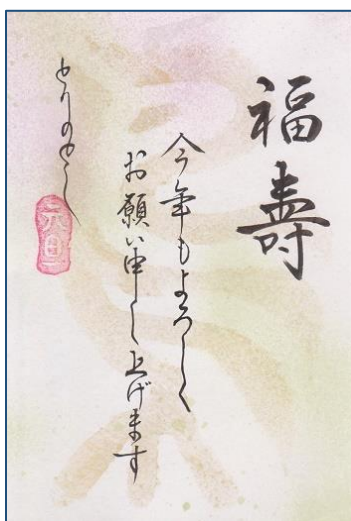 福壽
今年もよろしく
お願い申し上げます
とりのとし
元旦